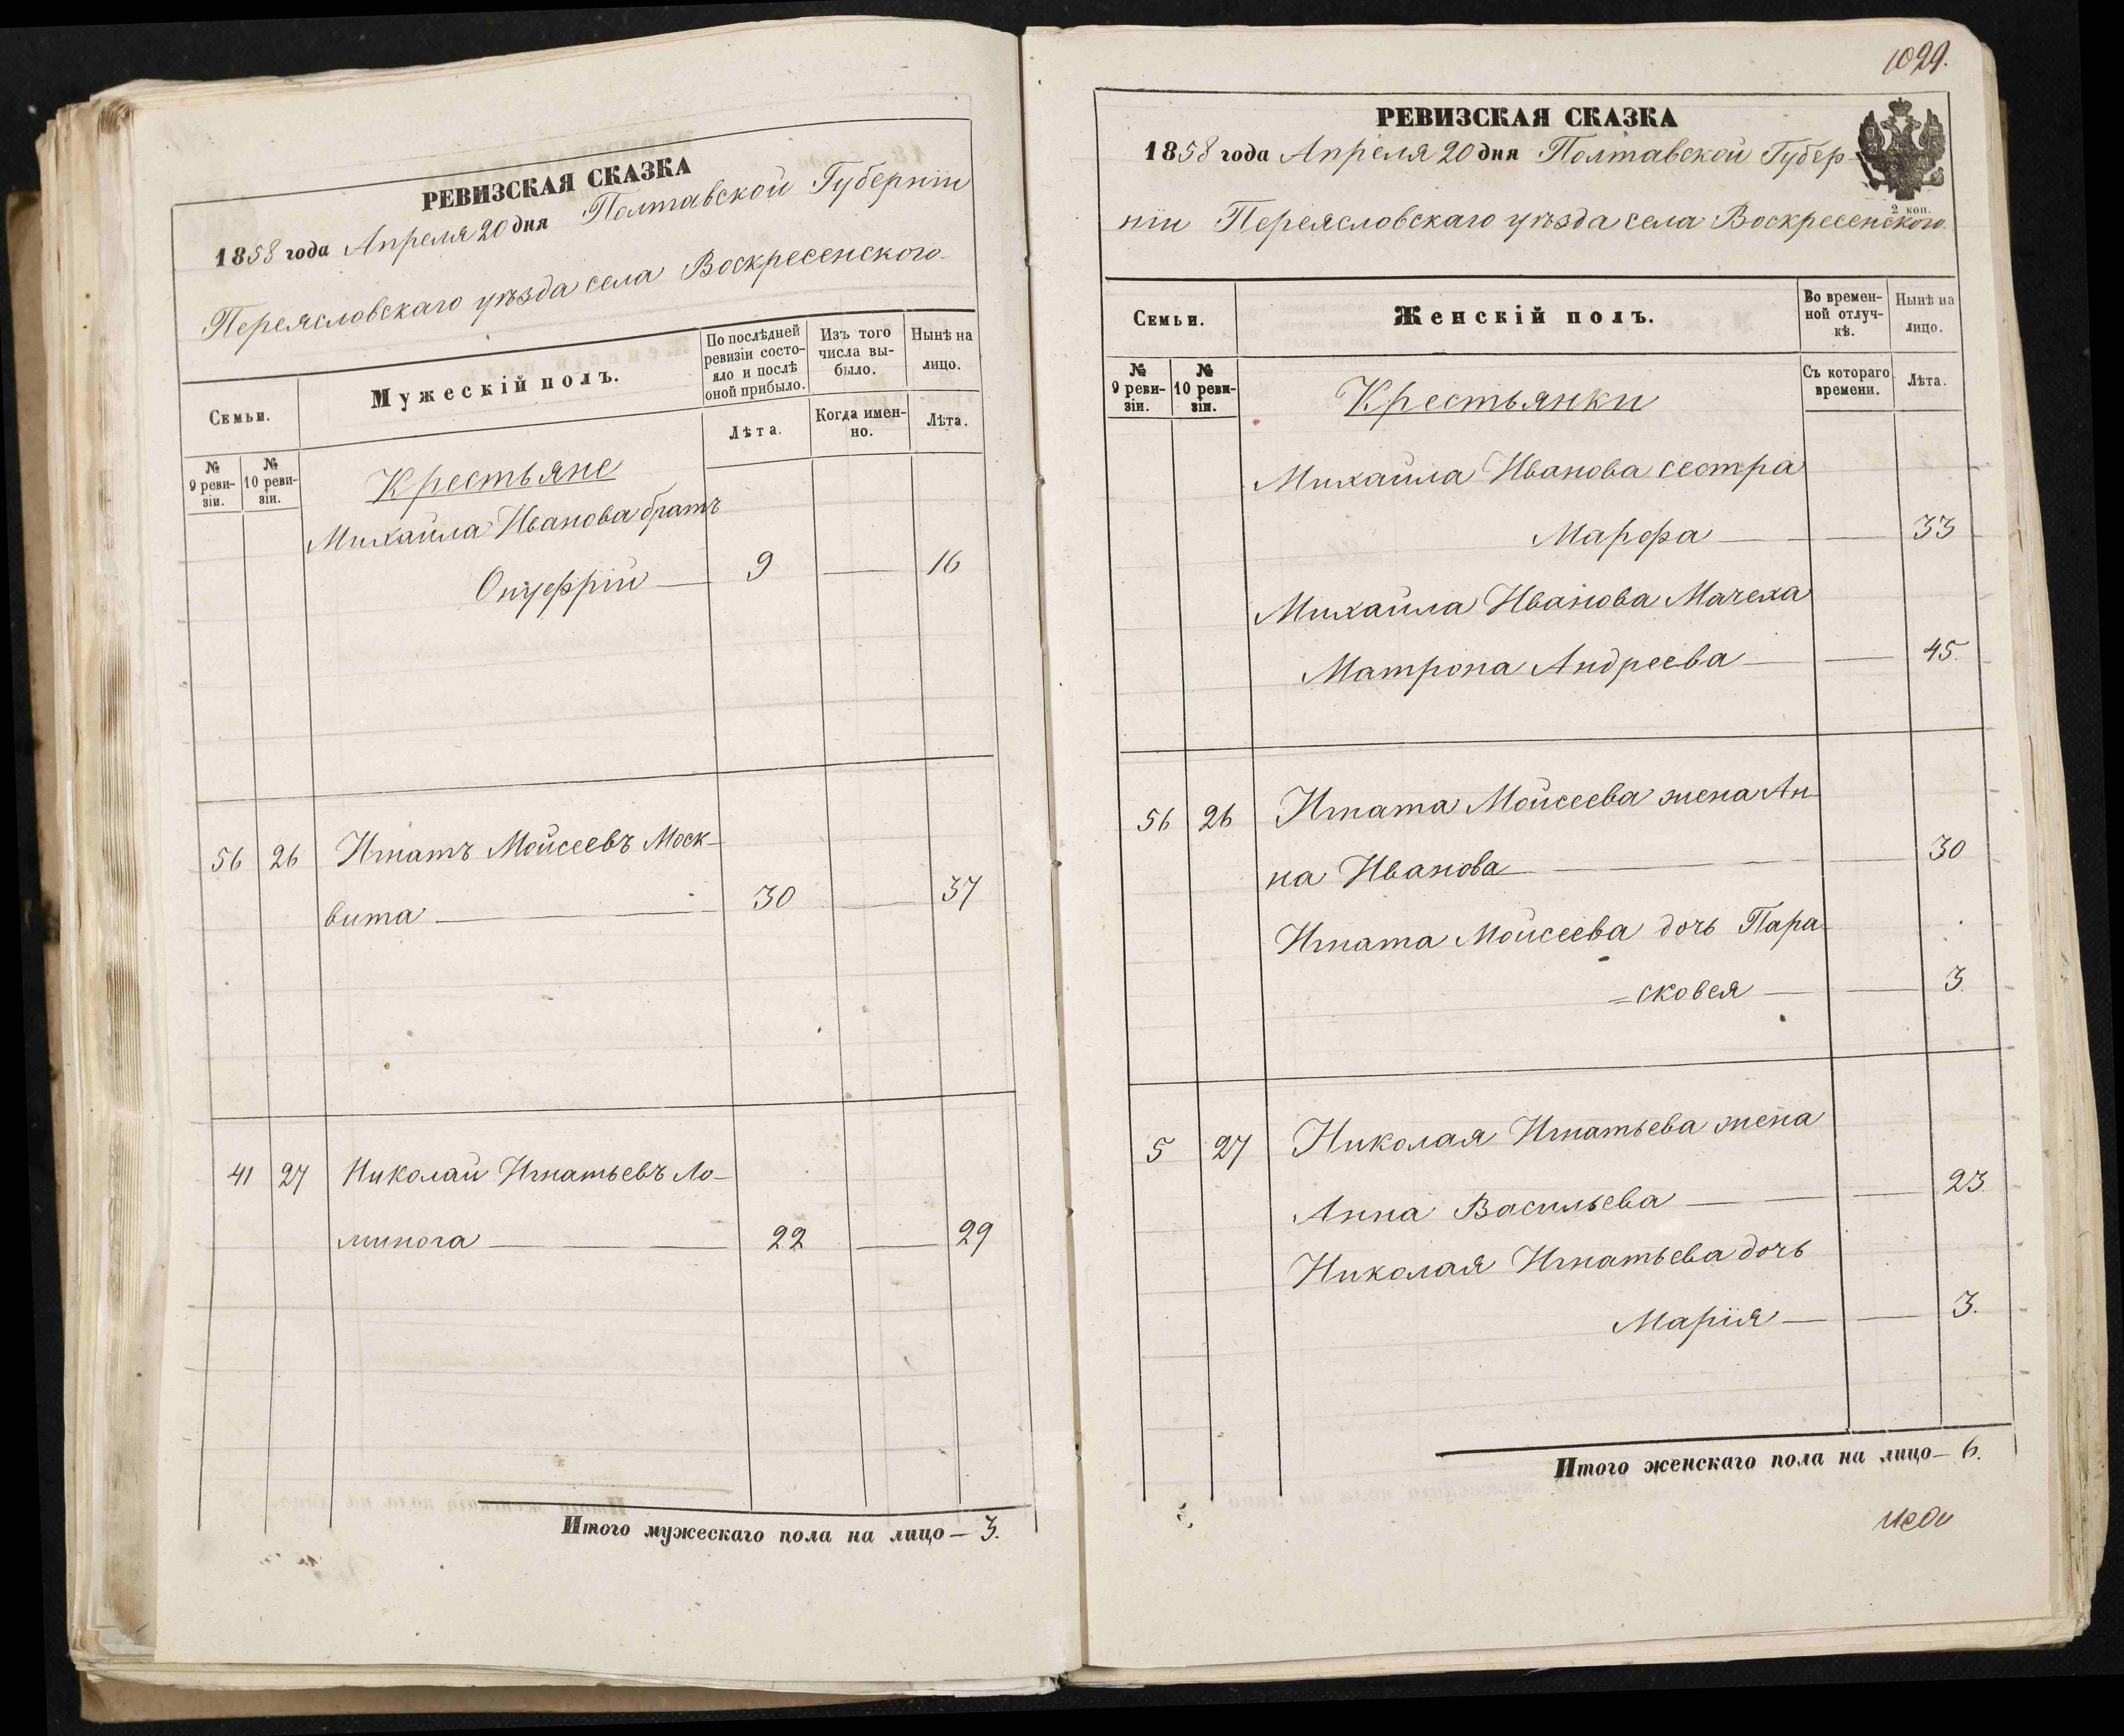 РЕВИЗСКАЯ СКАЗКА
1858 года Апреля 20 дня Полтавской Губерніи
Переясловскаго уѣзда села Воскресенского
Семьи.
Мужескій полъ.
По послѣдней ревизіи состояло и послѣ оной прибыло.
Изъ того числа выбыло.
Нынѣ на лицо.
Лѣта.
Когда именно.
Лѣта.
№ 9 ревизіи.
№ 10 ревизіи.
Крестьяне
Михаила Иванова братъ
Онуфрій — 9 — 16
56 26 Игнатъ Мойсеевъ Моск-
вита — 30 — 37
41 27 Николай Игнатьевъ Ло-
минога — 22 — 29
Итого мужескаго пола на лицо — 3.
1029.
РЕВИЗСКАЯ СКАЗКА
1858 года Апреля 20 дня Полтавской Губер-
2 коп.
ніи Переясловскаго уѣзда села Воскресенского
Семьи.
Женскій полъ.
Во временной отлучкѣ.
Нынѣ на лицо.
№ 9 ревизіи.
№ 10 ревизіи.
Съ котораго времени.
Лѣта.
Крестьянки
Михаила Иванова сестра
Марфа — — 33
Михаила Иванова Мачеха
Матрона Андреева — — 45.
56 26 Игната Мойсеева жена Ан-
на Иванова — — 30
Игната Мойсеева дочь Пара-
=сковея — — 3.
5 27 Николая Игнатьева жена
Анна Васильева — — 23.
Николая Игнатьева дочь
Марія — — 3.
Итого женскаго пола на лицо — 6.